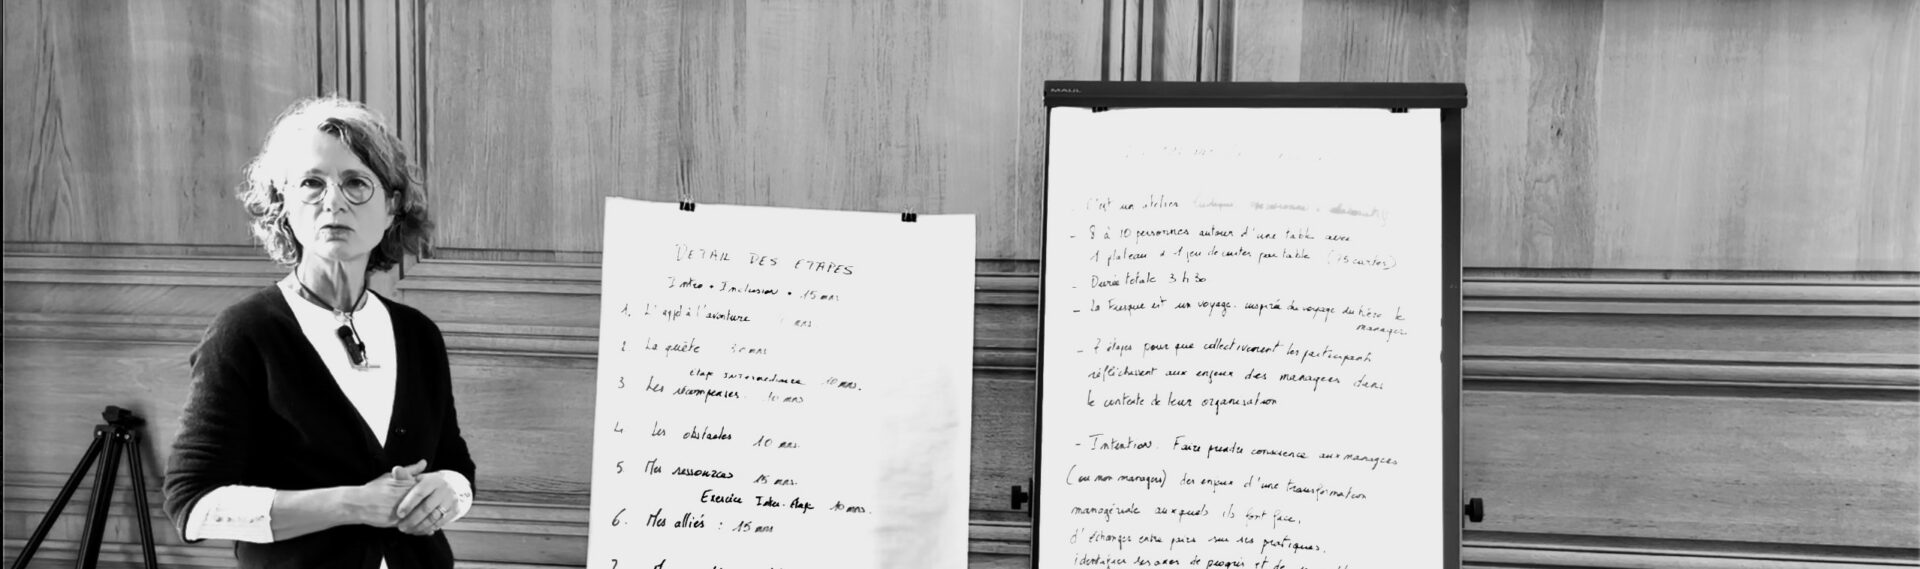 DETAIL DES ETAPES
Intro + Inclusion • 15 mns
1. L'appel à l'aventure mns.
2 La quête 30 mns
étape intermédiaire 10 mns.
3 Les récompenses. 10 mns
4 Les obstacles 10 mns.
5 Mes ressources 15 mns.
Exercice Inter. étape 10 mns.
6. Mes alliés : 15 mns
7.
MAUL
- C'est un atelier ludique
- 8 à 10 personnes autour d'une table avec
1 plateau & 1 jeu de cartes par table (75 cartes)
- Durée totale 3 h 30
- La Fresque est un voyage. inspirée du voyage du héro le
manager
- 7 étapes pour que collectivement les participants
réfléchissent aux enjeux des managers dans
le contexte de leur organisation
- Intention. Faire prendre conscience aux managers
(ou non managers) des enjeux d'une transformation
managériale auxquels ils font face,
d'échanger entre pairs sur ses pratiques,
identifier ses axes de progrès et de